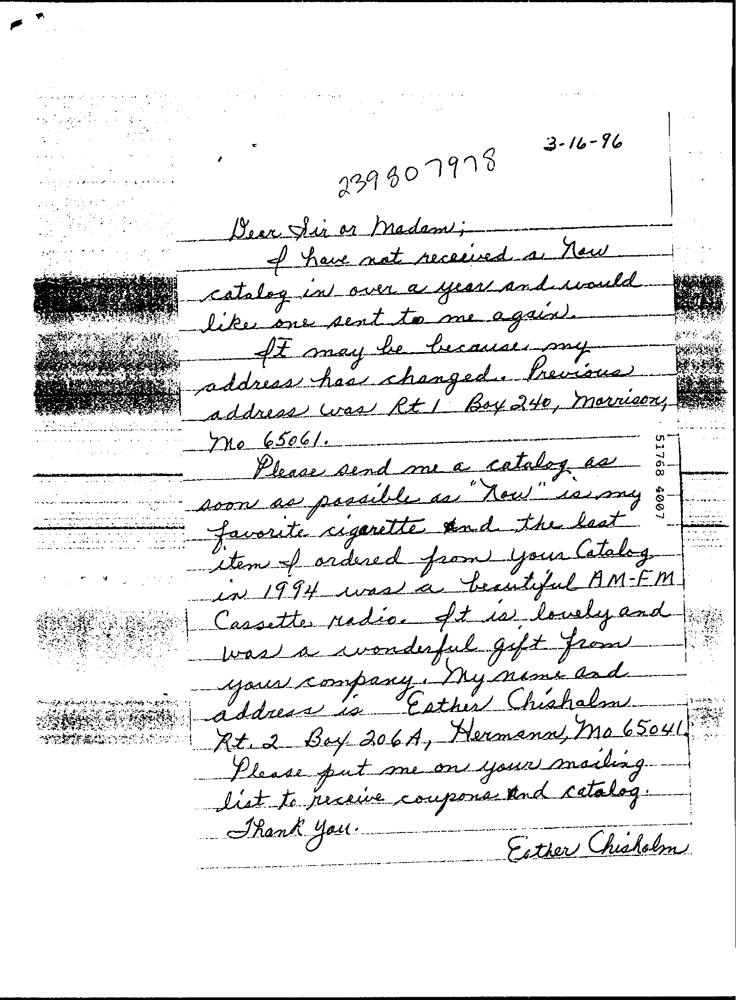 3-16-96
239807978
Dear Sir or Madam;
I have not received a Now
catalog in over a year and would
like one sent to me again.
It may be because my
address has changed. Previous
address was Rt 1 Box 240, Morrison,
Mo 65061.
Please send me a catalog as
soon as possible as "Now" is my
favorite cigarette and the last
item I ordered from your Catalog
in 1994 was a beautiful AM-FM
Cassette radio. It is lovely and
was a wonderful gift from
your company. My name and
address is Esther Chisholm
Rt. 2 Box 206A, Hermann, Mo 65041.
Please put me on your mailing
list to receive coupons and catalog.
Thank you.
Esther Chisholm
51768 4007